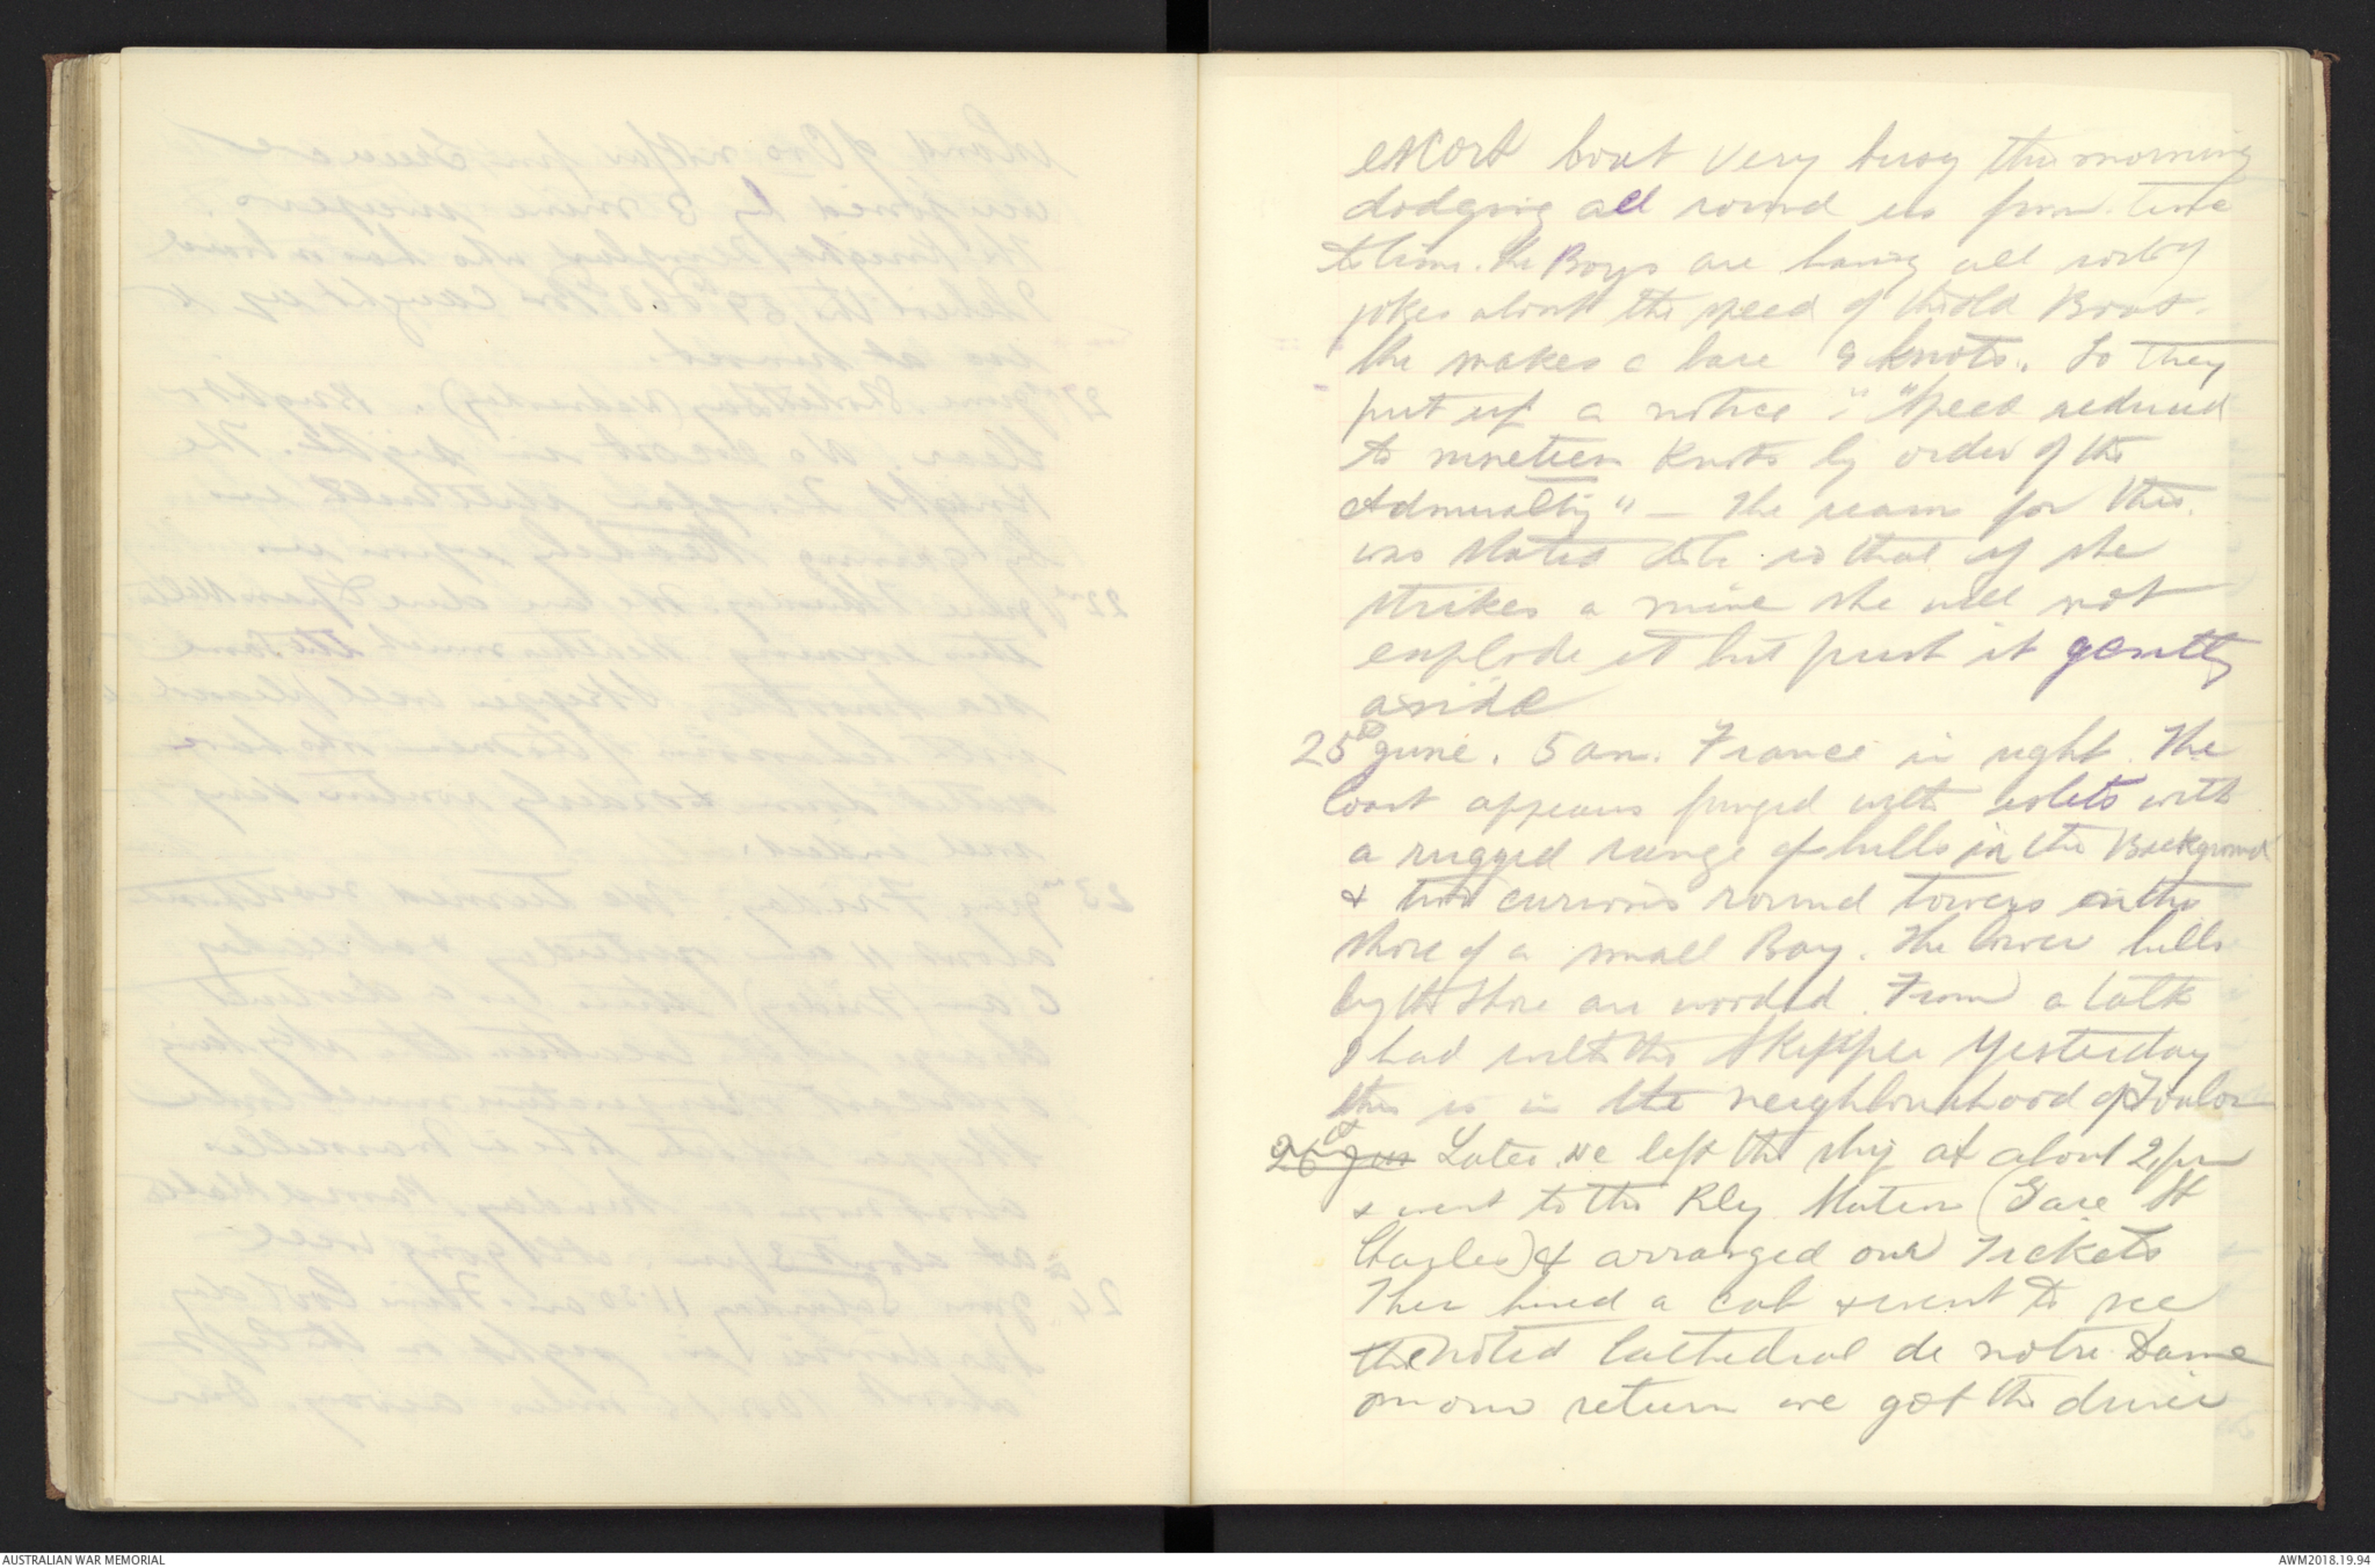 escort boat very busy this morning
dodging all round us from time
to time. The Boys are having all sorts of
jokes about the speed of the old Boat.
She makes a bare 9 knots. So they
put up a notice "Speed reduced
to nineteen Knots by order of the
Admiralty" — The reason for this
was stated to be so that if she
strikes a mine she will not
explode it but push it gently
aside
25th June. 5 am. France in sight. The
Coast appears fringed with islets with
a rugged range of hills in the Background
& two curious round towers on the
shore of a small Bay. The lower hills
by the shore are wooded. From a talk
I had with the Skipper yesterday
this is in the neighbourhood of Toulon
26 Jun Later. We left the ship at about 2 pm
& went to the Rly Station (Gare St
Charles) & arranged our Tickets
Then hired a Cab & went to see
the noted Cathedral de notre Dame
on our return we got the driver
AUSTRALIAN WAR MEMORIAL
AWM2018.19.94